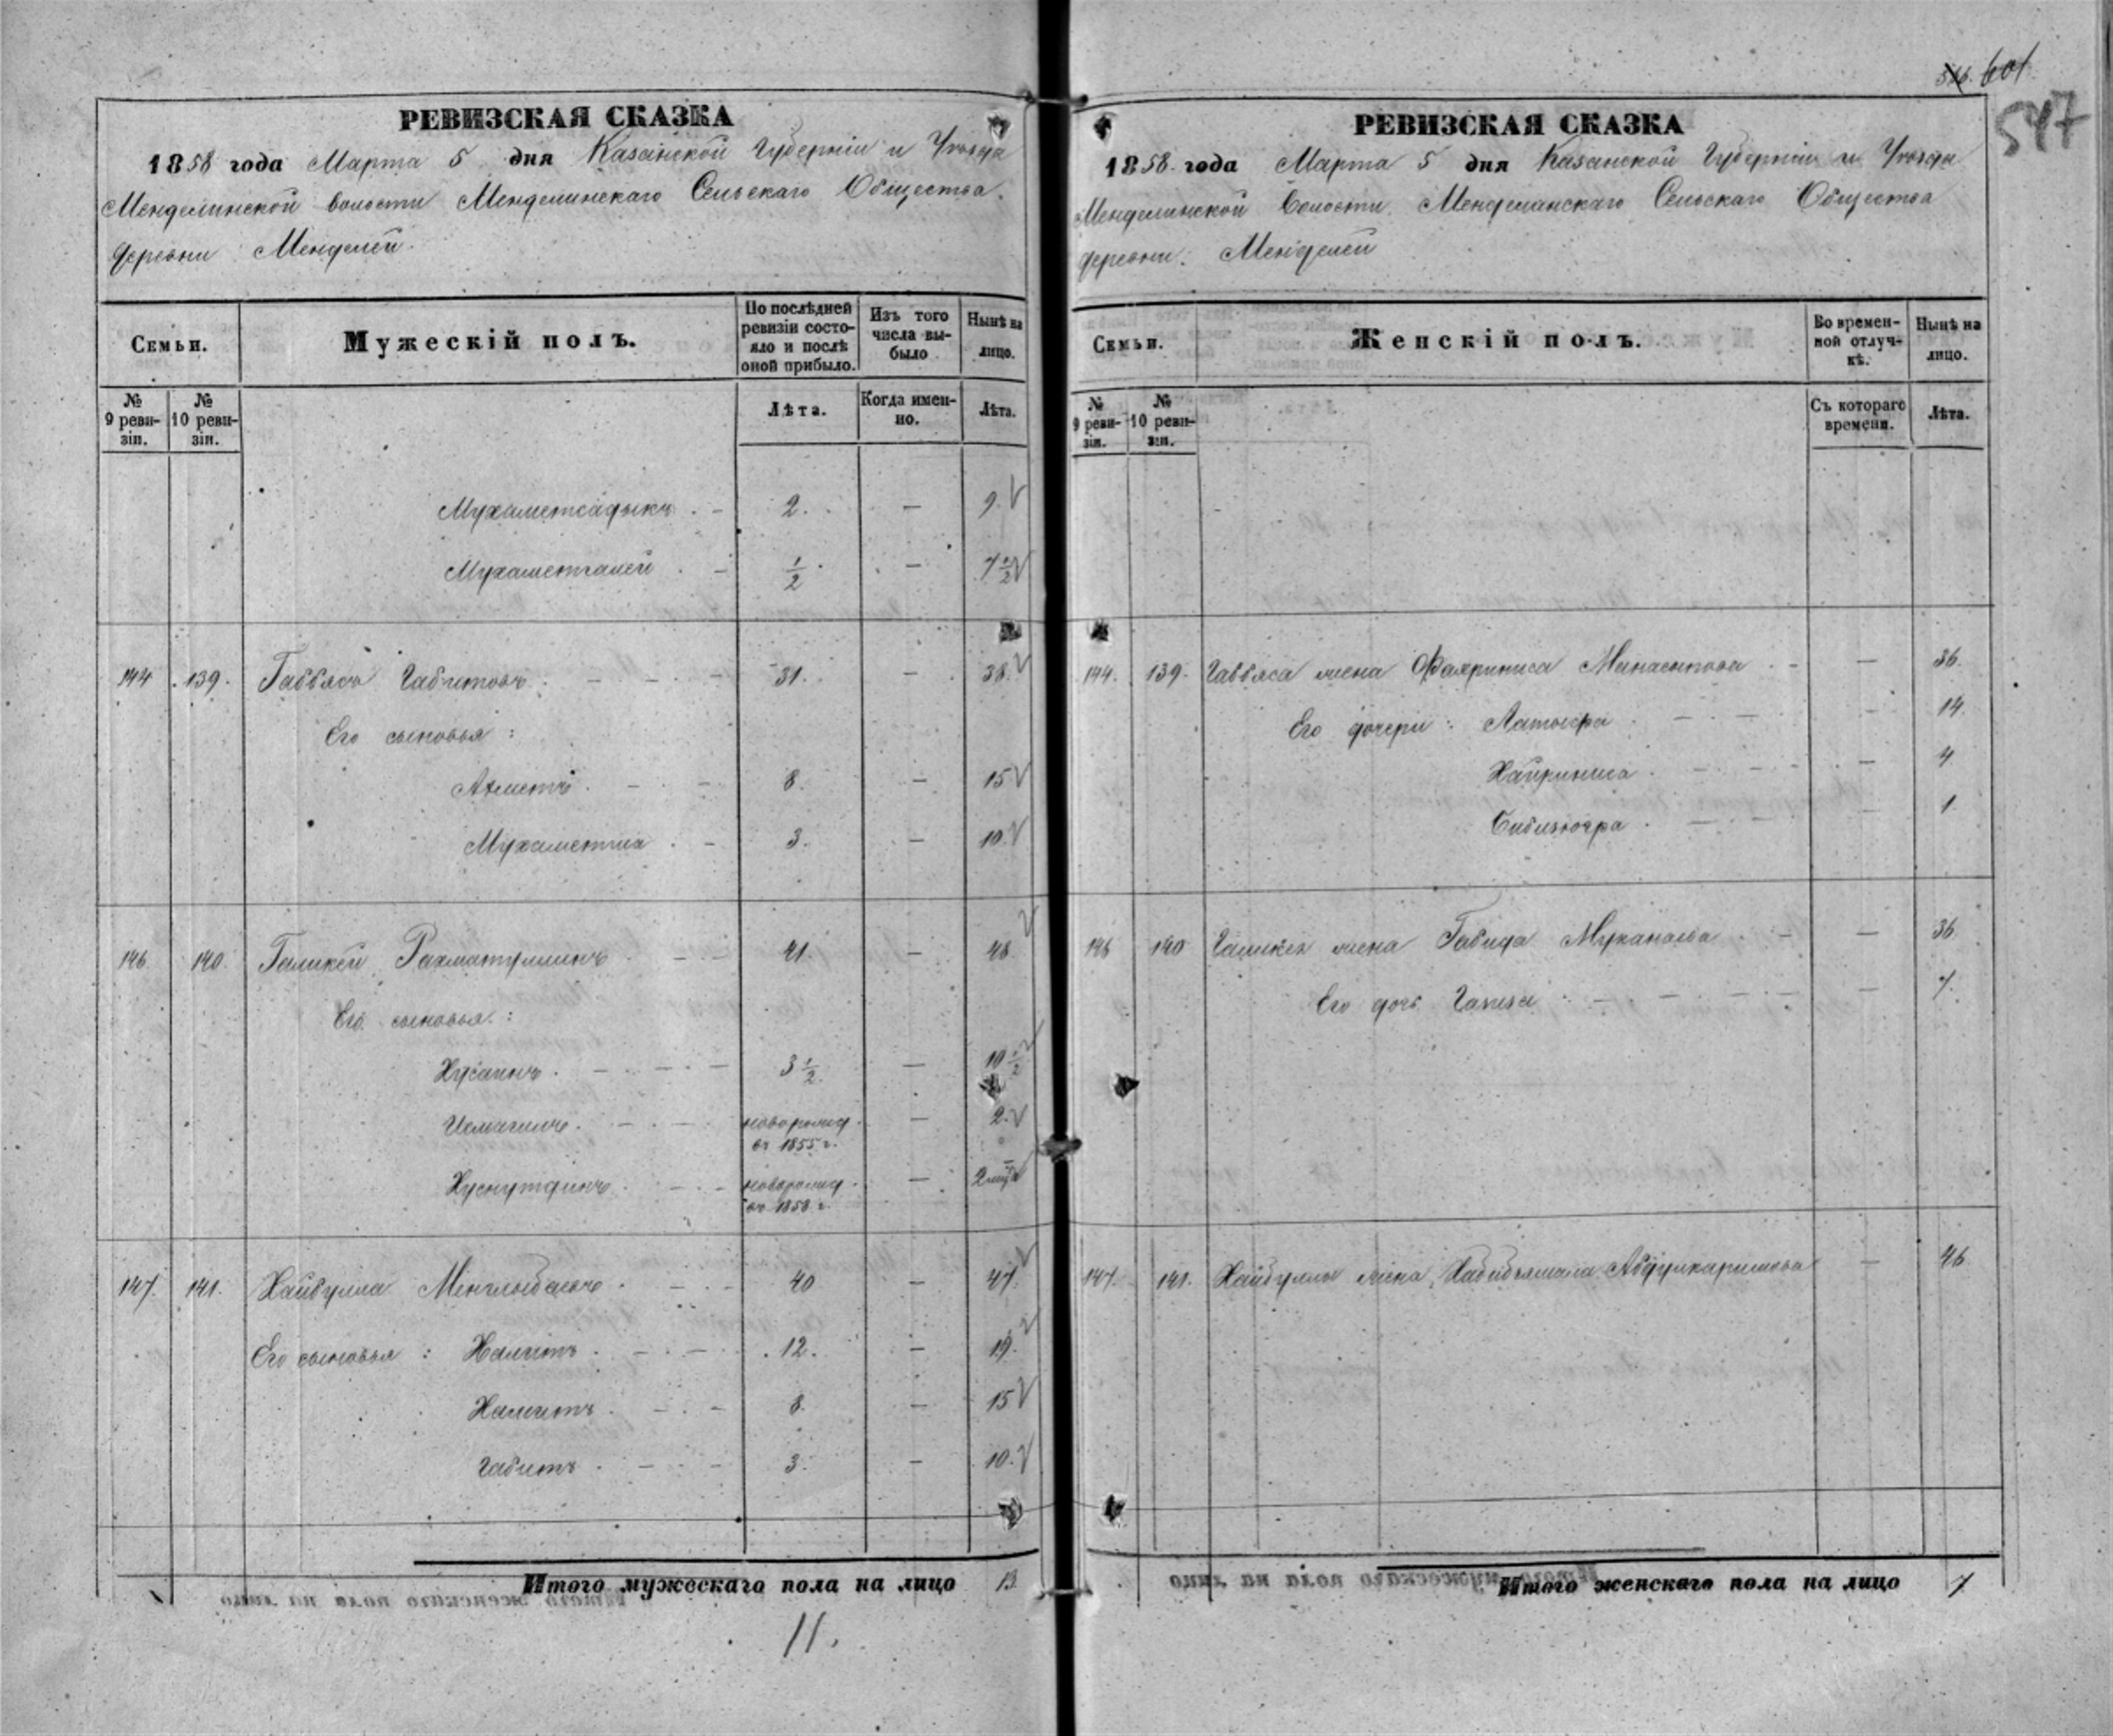 РЕВИЗСКАЯ СКАЗКА
1858 года Марта 5 дня Казанской Губернiи и Уѣзда
Менделинской волости Менделинскаго Сельскаго Общества
деревни Менделей.
Семьи.
Мужескiй полъ.
По послѣдней ревизiи состояло и послѣ оной прибыло.
Изъ того числа выбыло
Нынѣ на лицо.
№ 9 ревизiи.
№ 10 ревизiи.
Лѣта.
Когда именно.
Лѣта.
Мухаметсадыкъ 2. — 9.
Мухаметгалей 1/2 — 7 1/2
144 139. Габбясъ Габитовъ 31. — 38.
Его сыновья:
Ахметъ 8. — 15
Мухаметша 3. — 10
146 140. Галикей Рахматуллинъ 41. — 48.
Его сыновья:
Хусаинъ 3 1/2 — 10 1/2
Исмагилъ новорожд. въ 1855 г. — 2.
Хуснутдинъ новорожд. въ 1858 г. — 2 мѣц
147. 141. Хайбулла 40 — 47.
Его сыновья: Халитъ 12. — 19.
8. — 15
Габитъ 3. — 10.
Итого мужескаго пола на лицо 13
11.
516. 601
547
РЕВИЗСКАЯ СКАЗКА
1858 года Марта 5 дня Казанской Губернiи и Уѣзда
Менделинской Волости Менделинскаго Сельскаго Общества
деревни: Менделей
Семьи.
Женскiй полъ.
Во временной отлучкѣ.
Нынѣ на лицо.
№ 9 ревизiи.
№ 10 ревизiи.
Съ котораго времени.
Лѣта.
144. 139. Габбяса жена — 36.
Его дочери: — 14.
Хайриниса — 4
— 1
146 140 Галикея жена Габида Муканаева — 36.
Его дочь — 7.
147. 141. Хайбуллы жена Хабибъямала Абдулкаримова — 46
Итого женскаго пола на лицо 7